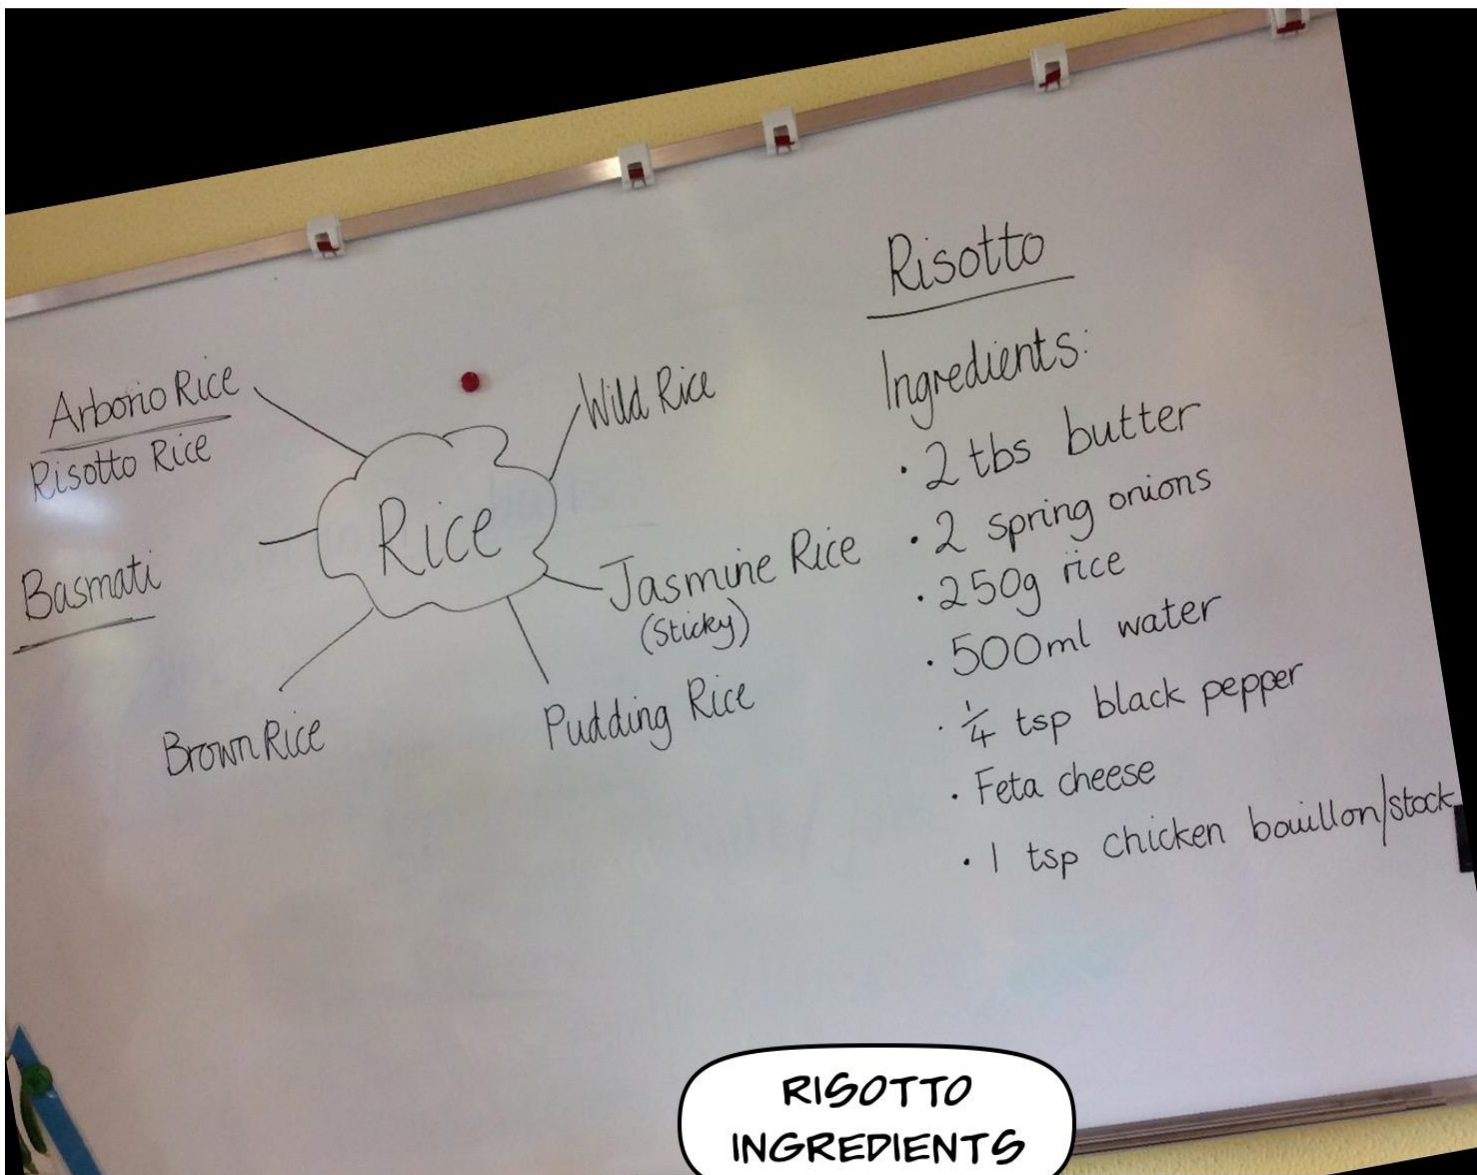 Arborio Rice
Risotto Rice
Basmati
Brown Rice
Rice
Wild Rice
Jasmine Rice
(Sticky)
Pudding Rice
Risotto
Ingredients:
· 2 tbs butter
· 2 spring onions
· 250g rice
· 500ml water
· 1/4 tsp black pepper
· Feta cheese
· 1 tsp chicken bouillon/stock
RISOTTO
INGREDIENTS